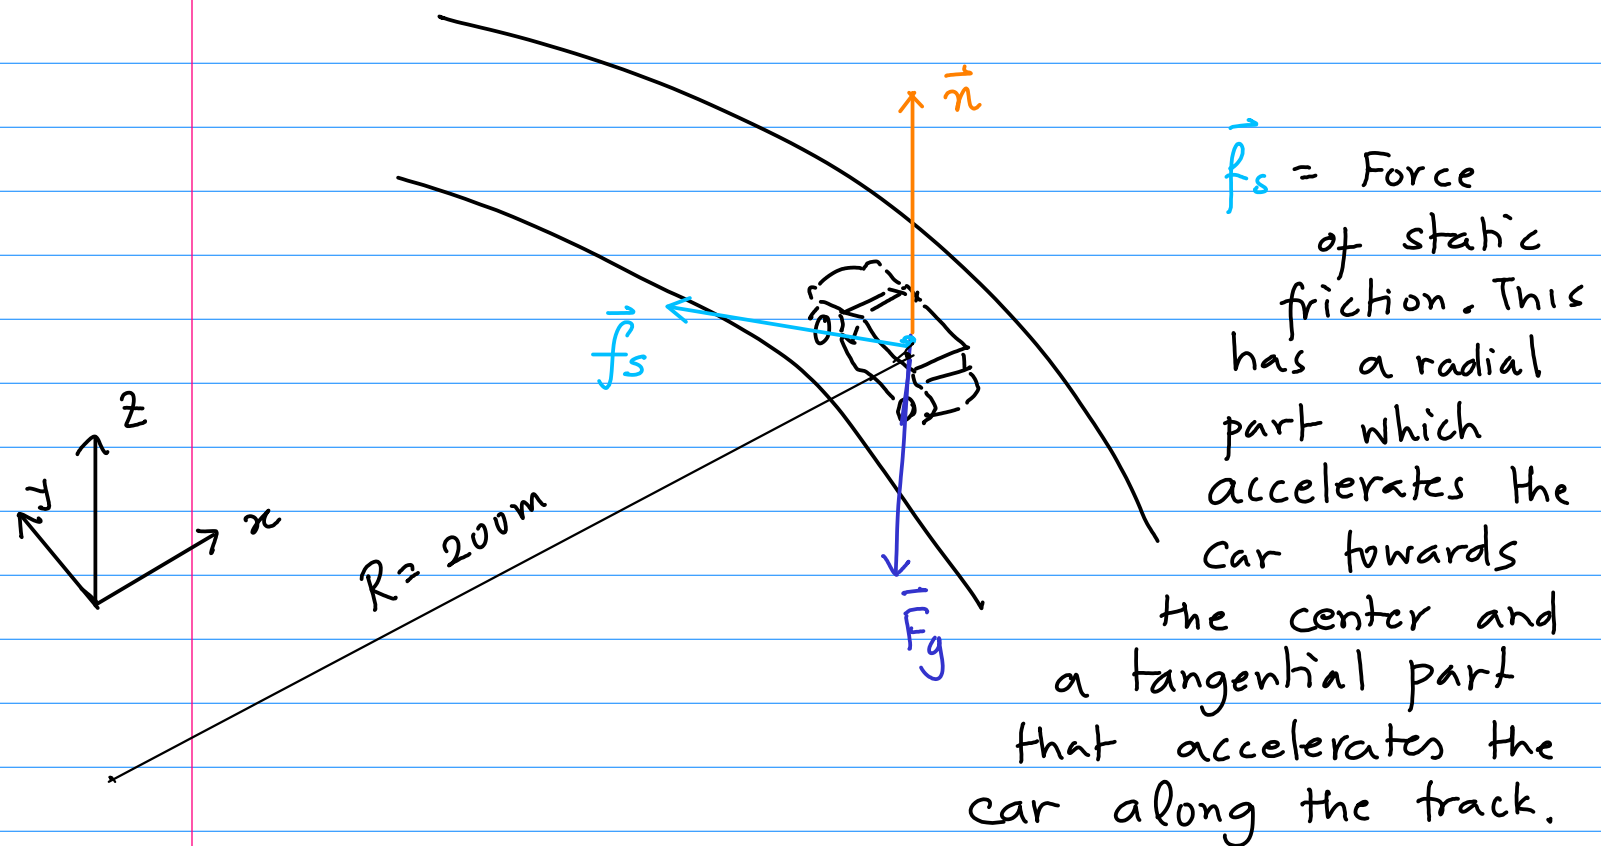 n⃗
f⃗s = Force
of static
friction. This
has a radial
part which
accelerates the
car towards
the center and
a tangential part
that accelerates the
car along the track.
f⃗s
z
y
x
R = 200m
F⃗g